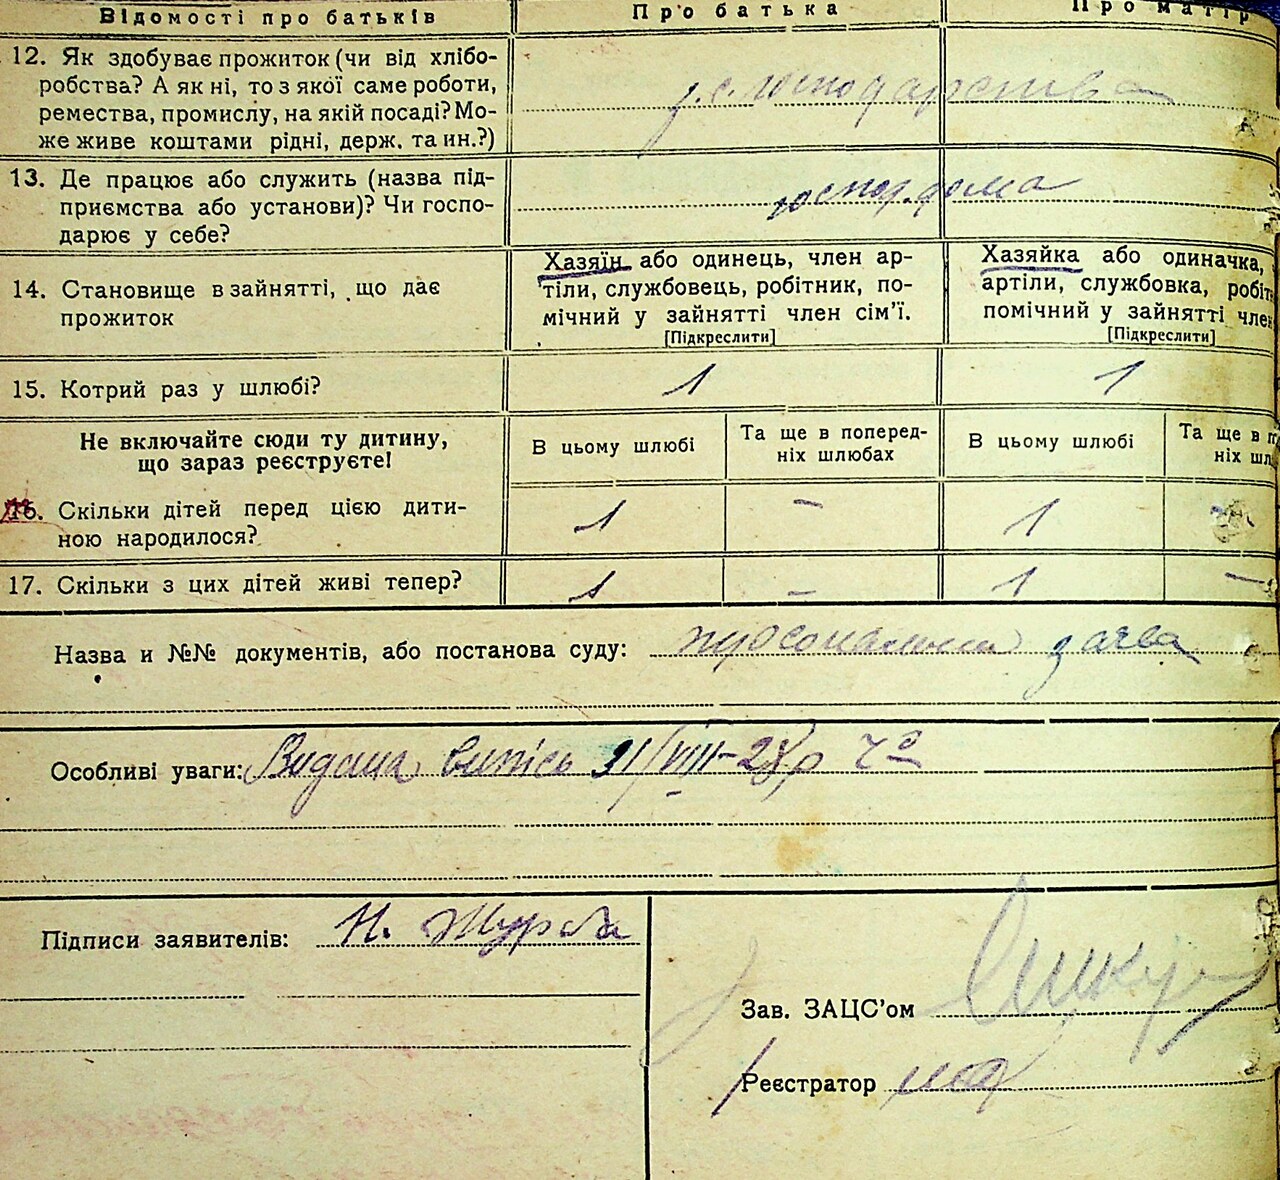 Відомості про батьків
Про батька
Про матір
12. Як здобуває прожиток (чи від хлібо-
робства? А як ні, то з якої саме роботи,
ремества, промислу, на якій посаді? Мо-
же живе коштами рідні, держ. та ин.?)
з с. господарства
13. Де працює або служить (назва під-
приємства або установи)? Чи госпо-
дарює у себе?
госпор. дома
14. Становище в зайнятті, що дає
прожиток
Хазяїн або одинець, член ар-
тіли, службовець, робітник, по-
мічний у зайнятті член сім'ї.
[Підкреслити]
Хазяйка або одиначка,
артіли, службовка, робіт
помічний у зайнятті член
[Підкреслити]
15. Котрий раз у шлюбі?
1
1
Не включайте сюди ту дитину,
що зараз реєструєте!
В цьому шлюбі
Та ще в поперед-
ніх шлюбах
В цьому шлюбі
Та ще в п
ніх шл
16. Скільки дітей перед цією дити-
ною народилося?
1
–
1
17. Скільки з цих дітей живі тепер?
1
–
1
–
Назва и №№ документів, або постанова суду: персональна заява
Особливі уваги: Видана випись 31/VIII-28р
Підписи заявителів: Н. Журба
Зав. ЗАЦС'ом
Реєстратор